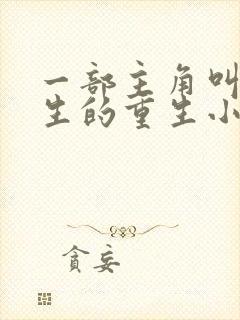 一部主角叫
生的重生小
贪妄